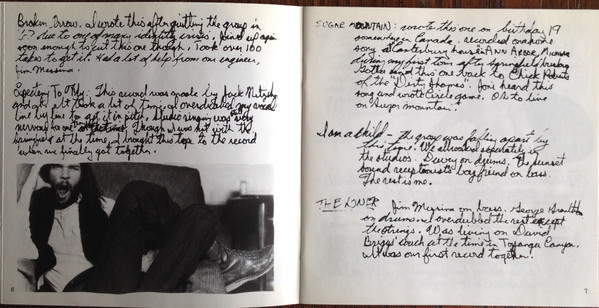 Broken Arrow. I wrote this after quitting the group in
'67 due to one of many identity crisis, joined up again
soon enough to cut this one though, took over 100
takes to get it. Had a lot of help from our engineer,
Jim Messina.
Expecting To Fly: This record was made by Jack Nitzsche
and I. It took a lot of time. I overdubbed my voice
line by line to get it in pitch, studio singing was very
nervous to me at the time. Though I was not with the
springfield at the time, I brought this tape to the record
when we finally got together.
6
SUGAR MOUNTAIN: wrote this one on birthday 19
somewhere in Canada, recorded one more
song at Canterbury house in ANN ARBOR, Michigan
during my first tour after springfield breakup
Gotta send this one back to Chick Roberts
of the "Dirty Shames". Joni heard this
song and wrote Circle game. Oh to live
on Sugar mountain.
I am a child - the group was falling apart by
this time. We all worked separately in
the studios. Dewey on drums, the sunset
sound receptionists boyfriend on bass.
The rest is me.
THE LONER Jim Messina on bass. George Grantham
on drums. I overdubbed the rest except
the strings. Was living on David
Briggs' couch at the time in Topanga Canyon.
It was our first record together.
7